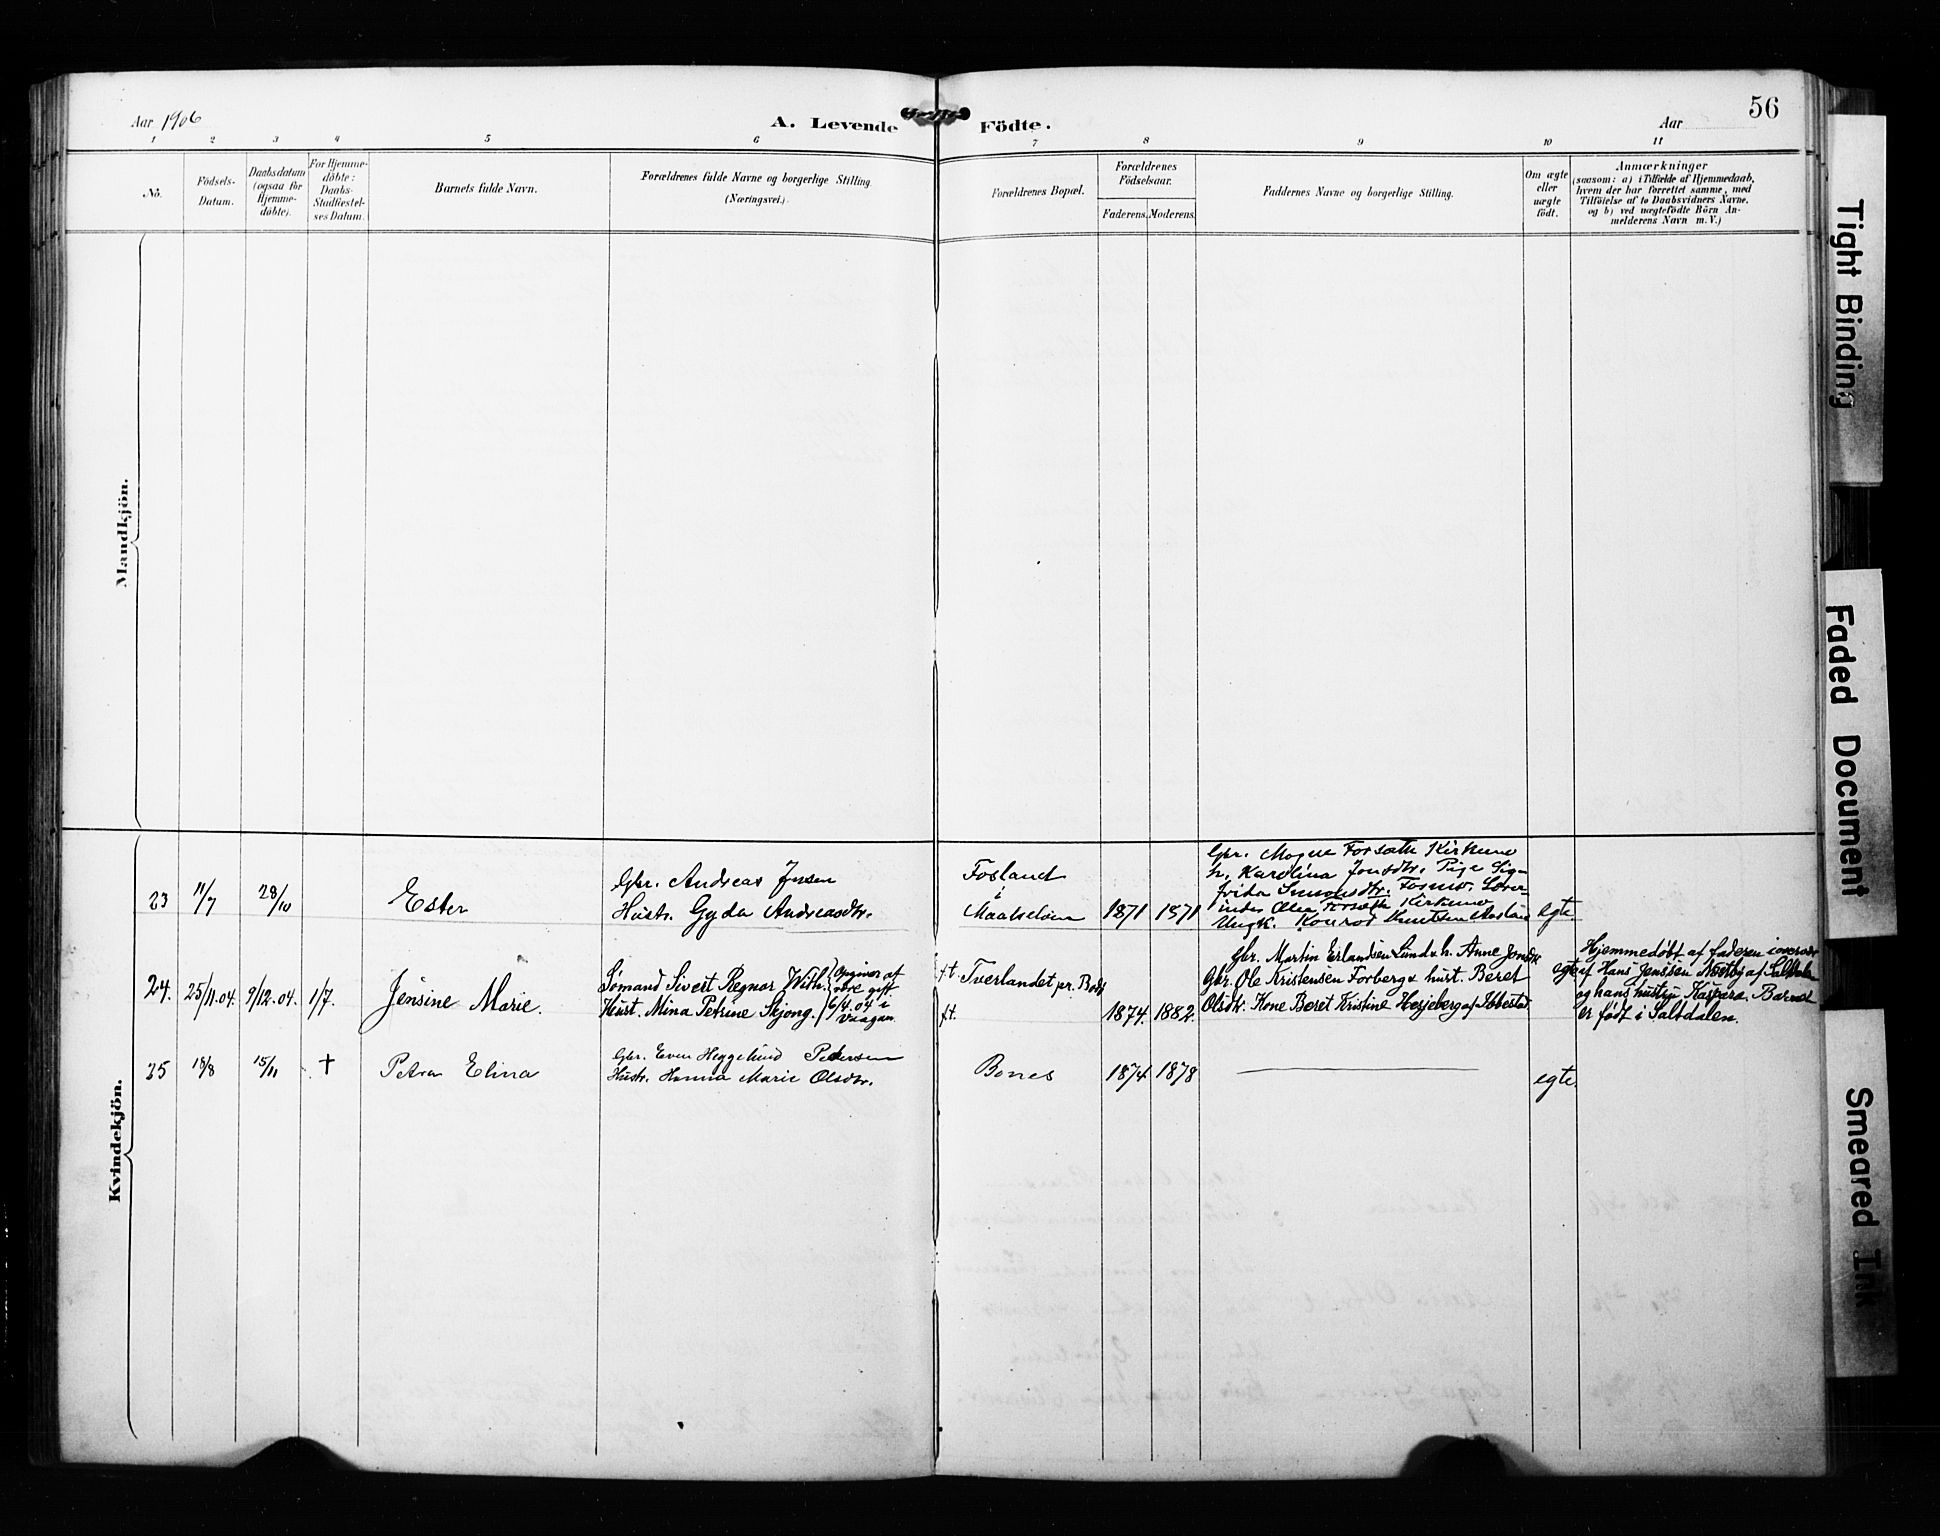 Aar 1906
A. Levende Födte.
Aar
56
1 2 3 4 5 6 7 8 9 10 11
No.
Födsels-
Datum.
Daabsdatum
(ogsaa for
Hjemme-
döbte).
For Hjemme-
döbte:
Daabs-
Stadfæstel-
ses Datum.
Barnets fulde Navn.
Forældrenes fulde Navne og borgerlige Stilling
(Næringsvei.)
Forældrenes Bopæl.
Forældrenes
Födselsaar.
Faderens. Moderens.
Faddernes Navne og borgerlige Stilling.
Om ægte
eller
uægte
födt.
Anmærkninger
(saasom: a) i Tilfælde af Hjemmedaab,
hvem der har forrettet samme, med
Tilföielse af to Daabsvidners Navne,
og b) ved uægtefödte Börn An-
melderens Navn m. V.)
Mandkjön.
Kvindekjön.
23 11/7 28/10 Ester
Gbr. Andreas Jensen
Hustr. Gyda Andreasdtr.
Fosland
i
Maalselven 1871 1871
Gbr. Mogne Forsæth Kirkemo
h. Karolina Jonsdtr. Pige Sig-
frida Simonsdtr. Fosmo.
Olea Forsæth Kirkemo
Ungk. Konrad Knutsen
egte.
24. 25/11.04. 9/12.04. 1/7. Jensine Marie.
Sømand Sivert Regnor With.
Hust. Mina Petrine Skjong.
Opgiver at
være gift
6/4.04 i
Vaagan.
ft. Tverlandet pr. Bodø
ft. 1874. 1882.
Gbr. Martin Erlandsen Lund & h. Anne Jonsdtr
Gbr. Ole Kristensen Forberg & hust. Beret
Olsdtr. Kone Beret Kristine Hesjeberg af Ibbestad
egte
Hjemmedøbt af faderen i overvær
af Hans Jenssen Nestby af Saltdalen
og hans hustru Kaspara. Barnet
er født i Saltdalen.
25 18/8 15/11 † Petra Elina
Gbr. Even Heggelund Pedersen
Hustr. Hanna Marie Olsdtr.
Bones 1874 1878
egte.
Tight Binding
Faded Document
Smeared Ink